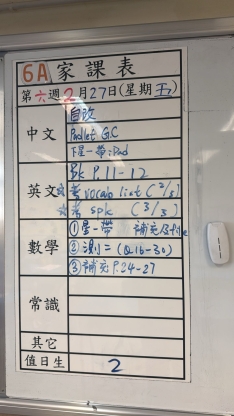 6A 家課表
第六週 2月27日(星期五)
自改
中文 Padlet G.C
下星一帶iPad
Bk P.11-12
英文 ☆考 vocab list (2/3)
☆考 spk (3/3)
①星一帶 補充
數學 ②測二 (Q16-30)
③補充 P.24-27
常識
其它
值日生 2